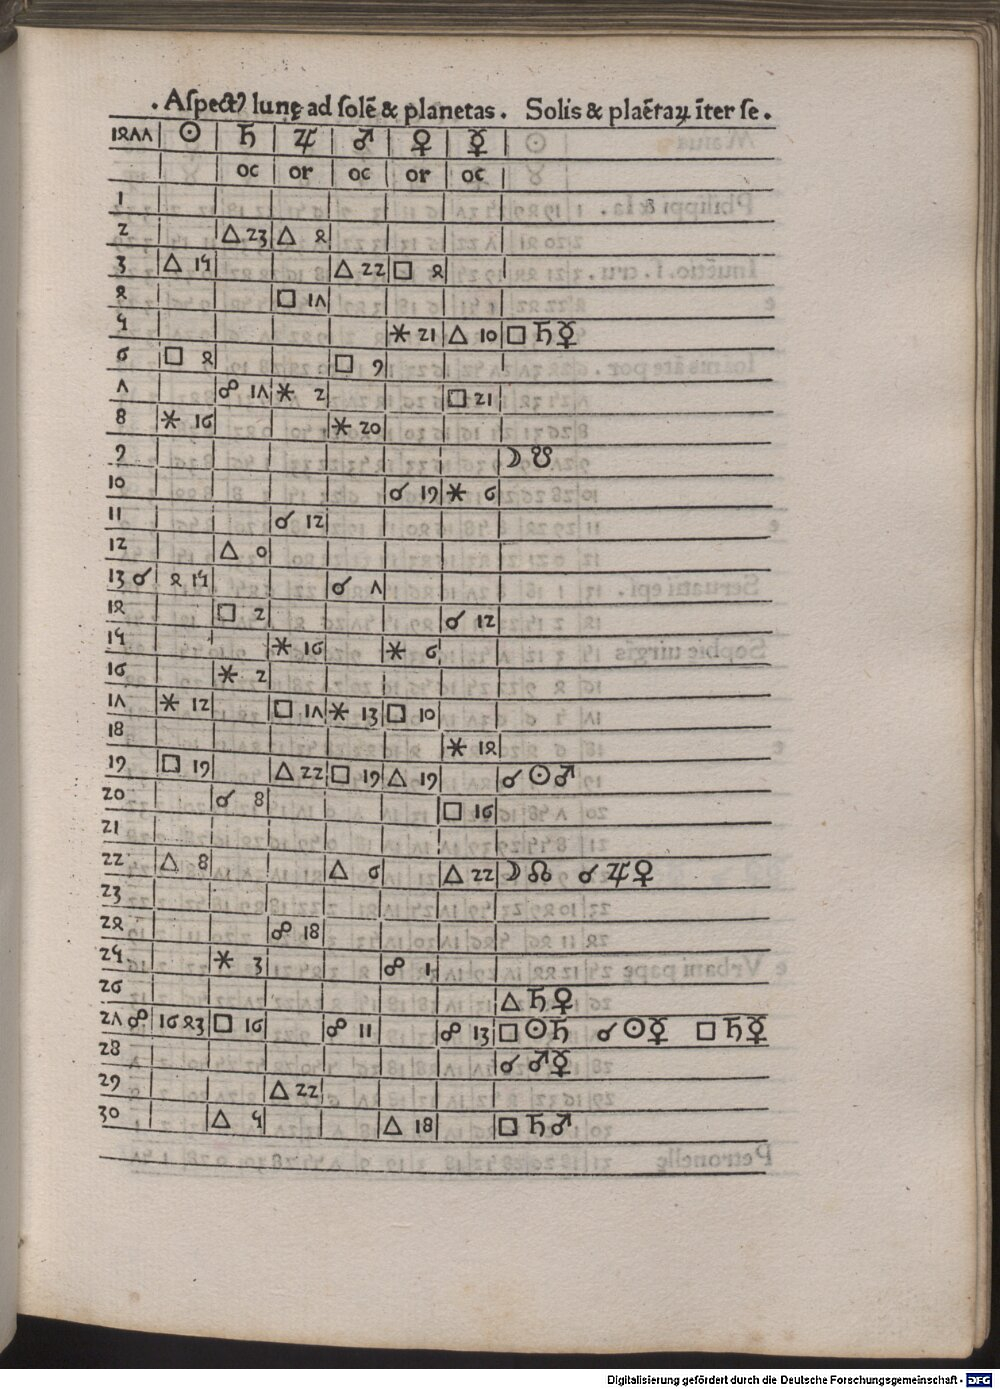 . Aſpectꝰ lunę ad ſolē & planetas . Solis & planētaꝝ īter ſe .
1477 ☉ ♄ ♃ ♂ ♀ ☿
oc or oc or oc
1
2 △ 23 △ 4
3 △ 15 △ 22 □ 4
4 □ 17
5 ⚹ 21 △ 10 □ ♄ ☿
6 □ 4 □ 9
7 ☍ 17 ⚹ 2 □ 21
8 ⚹ 16 ⚹ 20
9 ☽ ☋
10 ☌ 19 ⚹ 6
11 ☌ 12
12 △ 0
13 ☌ 4 15 ☌ 7
14 □ 2 ☌ 12
15 ⚹ 16 ⚹ 6
16 ⚹ 2
17 ⚹ 12 □ 17 ⚹ 13 □ 10
18 ⚹ 14
19 □ 19 △ 22 □ 19 △ 19 ☌ ☉ ♂
20 ☌ 8 □ 16
21
22 △ 8 △ 6 △ 22 ☽ ☊ ☌ ♃ ♀
23
24 ☍ 18
25 ⚹ 3 ☍ 1
26 △ ♄ ♀
27 ☍ 16 43 □ 16 ☍ 11 ☍ 13 □ ☉ ♄ ☌ ☉ ☿ □ ♄ ☿
28 ☌ ♂ ☿
29 △ 22
30 △ 5 △ 18 □ ♄ ♂
Digitalisierung gefördert durch die Deutsche Forschungsgemeinschaft - DFG